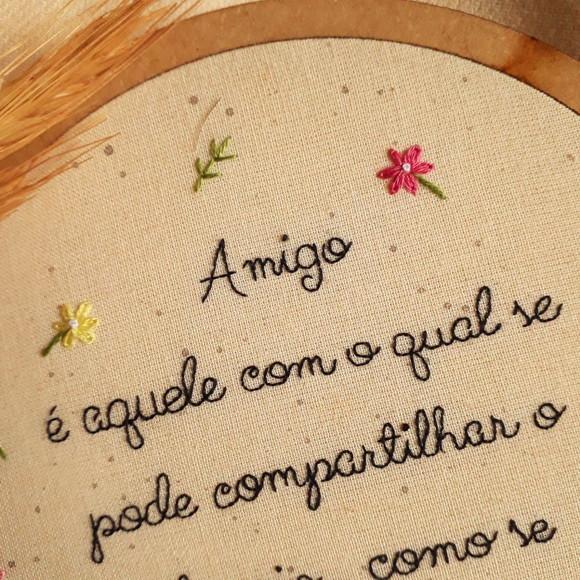 Amigo
é aquele com o qual se
pode compartilhar o
como se